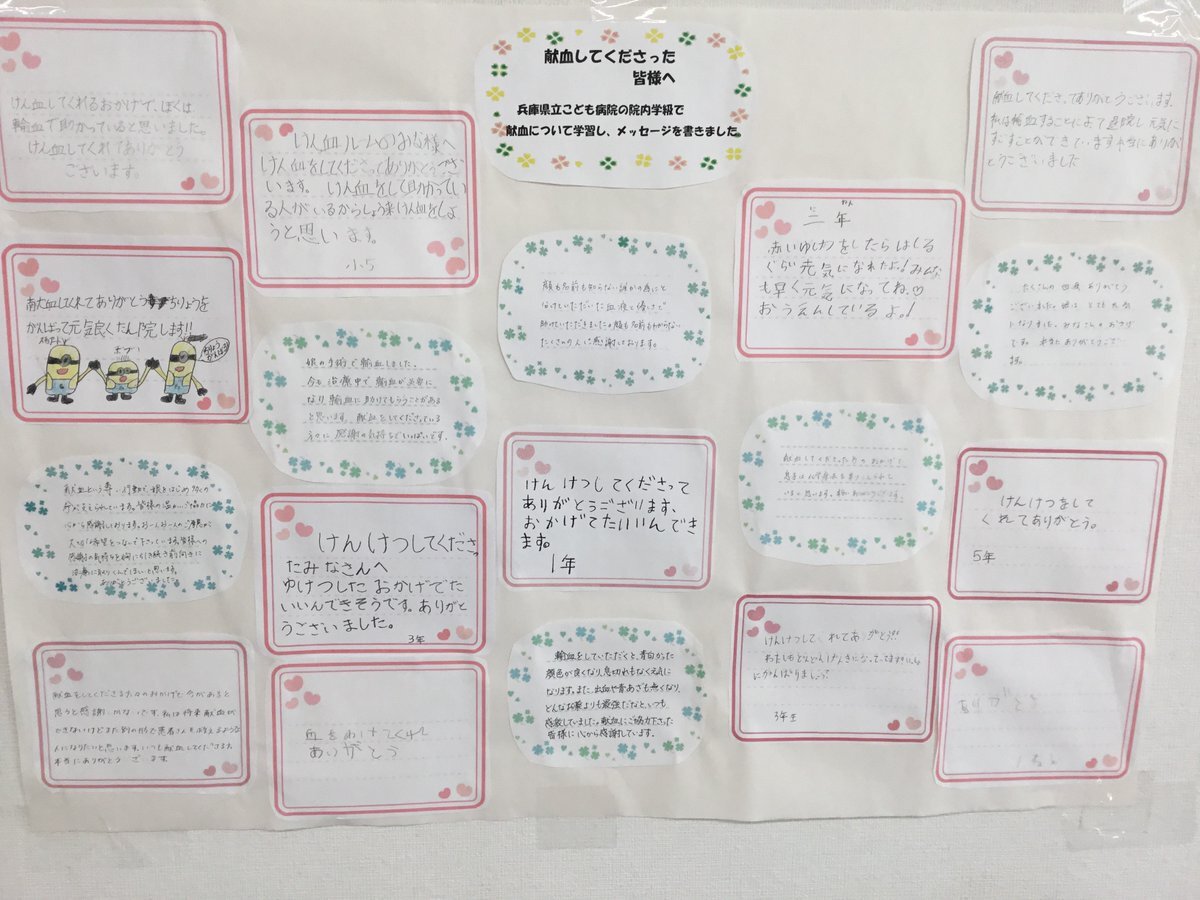 献血してくださった
皆様へ
兵庫県立こども病院の院内学級で
献血について学習し、メッセージを書きました
けん血してくれるおかげで、ぼくは
輸血で助かっていると思いました。
けん血してくれてありがとう
ございます。
けん血ルームのみな様へ
けん血をしてくださってありがとうござ
います。けん血をして助かってい
る人がいるからしょう来けん血をしよ
うと思います。
小5
献血してくださってありがとうございます。
私は輸血することによって退院し元気に
すごすことができています本当にありが
とうございました
三年
赤いゆけつをしたらはしる
ぐらい元気になれたよ!みんな
も早く元気になってね♡
おうえんしているよ。!
献血してくれてありがとう ちりょうを
がんばって元気良くたん院します!!
顔も名前も知らない誰かの為にと
分けていただいた血液と優しさで
助けていただきました。顔も名前もわからない
たくさんの人に感謝しております。
たくさんの 献血 ありがとう
ございました。
です。本当にありがとうござい
ます。
娘の手術で輸血しました。
今も治療中で輸血が必要に
なり輸血に助けてもらうことがある
と思います。献血をしてくださっている
方々に感謝の気持ちでいっぱいです。
献血してくださった方のおかげで、
けん けつしてくださって
ありがとうございます、
おかげでたいいんでき
ます。
1年
けんけつをして
くれてありがとう。
5年
献血という尊い行動で、娘をはじめ、多くの
心から感謝しております。お一人お一人のご厚意が
大切な希望をつないで下さっています。皆様への
感謝の気持ちを胸に引き続き前向きに
治療に取りくんでまいりたいと思います。
ありがとうございました
けんけつしてくださっ
たみなさんへ
ゆけつしたおかげでた
いいんできそうです。ありがと
うございました。
3年
けんけつして れてありがとう!!
わたしもどんどんげんきになって
にがんばりましょう!
3年生
輸血をしていただくと、青白かった
顔色が良くなり、息切れもなく元気に
なります。また、出血や青あざも無くなり、
どんなお薬よりも最強だなと、いつも
感激していました。献血にご協力下さった
皆様に心から感謝しています。
献血をしてくださる方々のおかげで今があると
思うと感謝しかないです。私は将来献血が
できないけどまた別の形で患者さんを支えるような
人になりたいと思います。いつも献血してくださります。
本当にありがとうございます。
血をわけてくれ
ありがとう
ありがとう